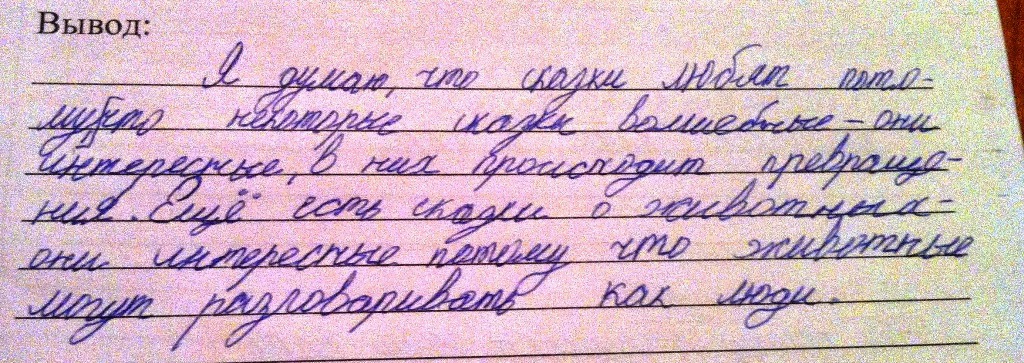 Вывод:
Я думаю, что сказки любят пото-
му что некоторые сказки волшебные - они
интересные, в них происходит превраще-
ния. Ещё есть сказки о животных -
они интересные потому что животные
могут разговаривать как люди.